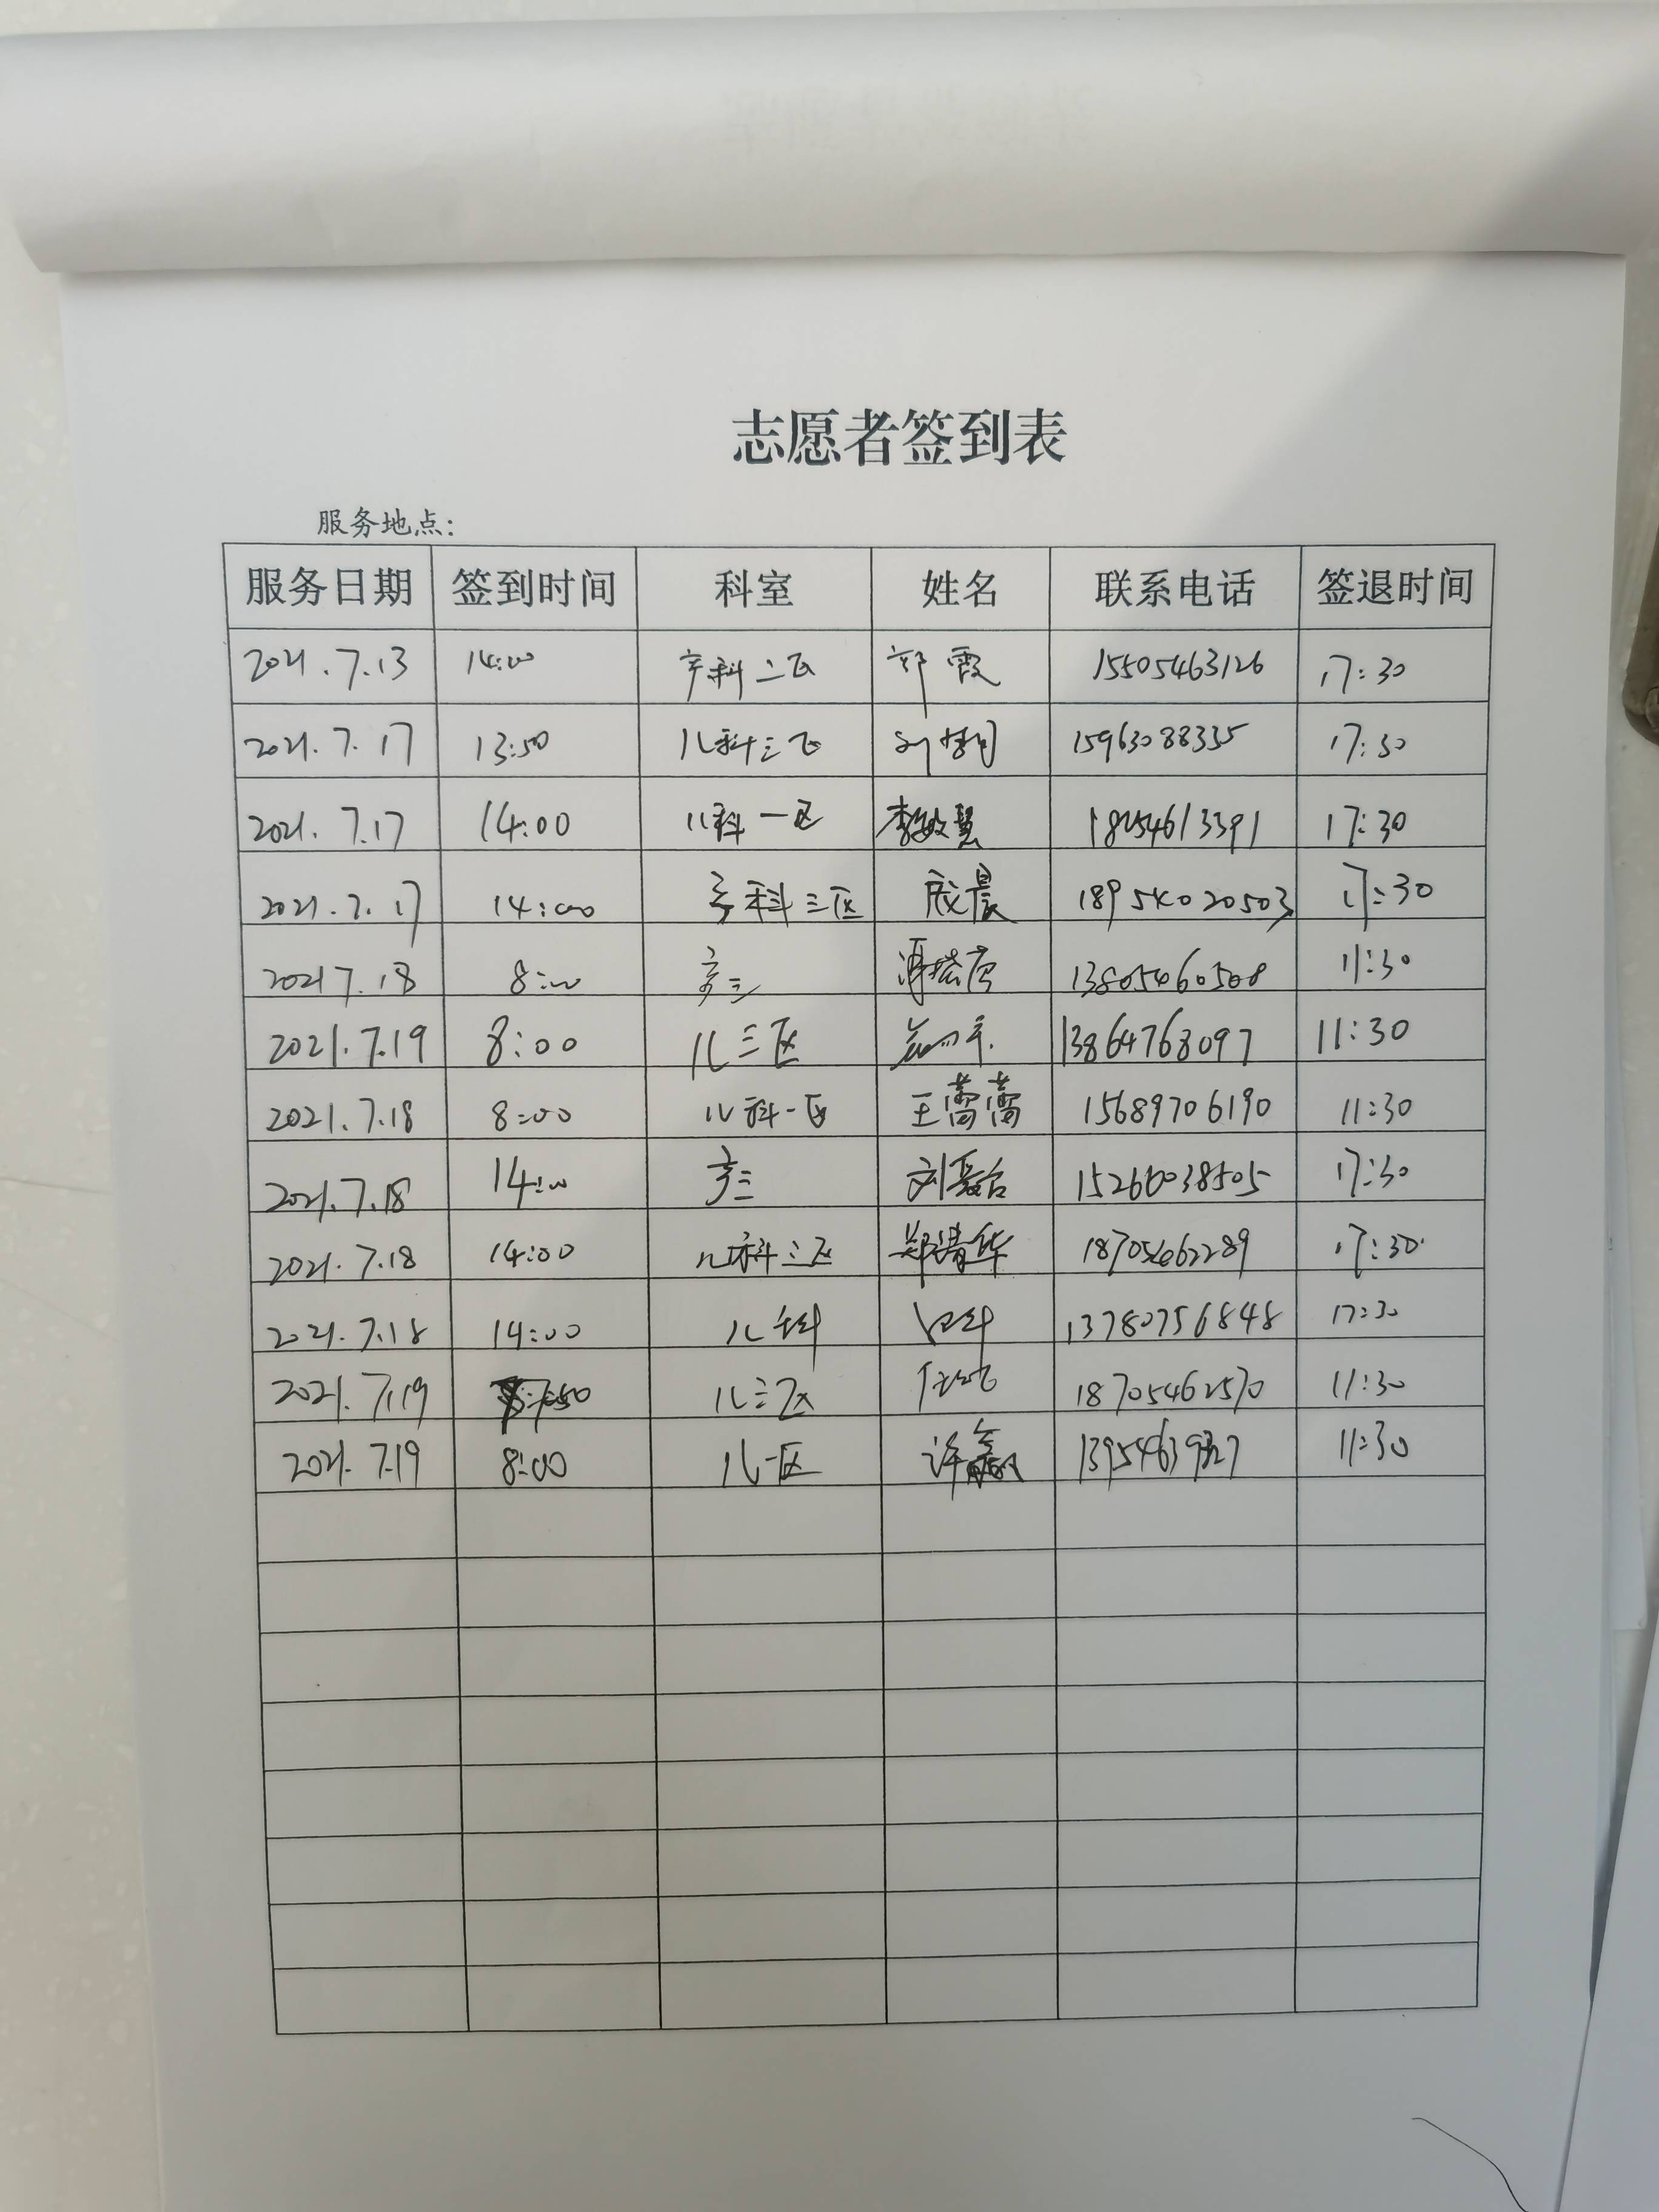 志愿者签到表
服务地点:
服务日期 签到时间 科室 姓名 联系电话 签退时间
2021.7.13 14:00 产科二区 郭霞 15505463126 17:30
2021.7.17 13:50 儿科三区 15963088335 17:30
2021.7.17 14:00 儿科一区 李敏慧 17:30
2021.7.17 14:00 产科三区 成晨 17:30
2021 7.18 8:00 产三 13805460508 11:30
2021.7.19 8:00 儿三区 13864768097 11:30
2021.7.18 8:00 儿科一区 王蒿蒿 15689706190 11:30
2021.7.18 14:00 产三 15266038505 17:30
2021.7.18 14:00 儿科三区 郑清华 17:30
2021.7.18 14:00 儿科 13780756848 17:30
2021.7.19 7:50 儿三区 18705462570 11:30
2021.7.19 8:00 儿一区 许鑫 11:30